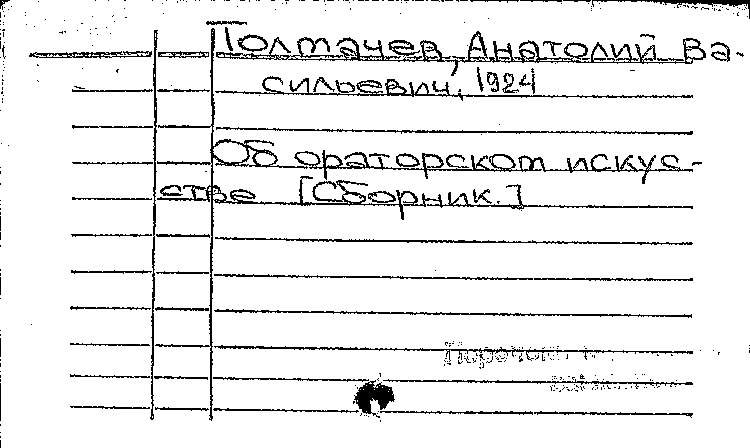 Толмачев, Анатолий Ва-
сильевич, 1924
Об ораторском искус-
стве [Сборник.]